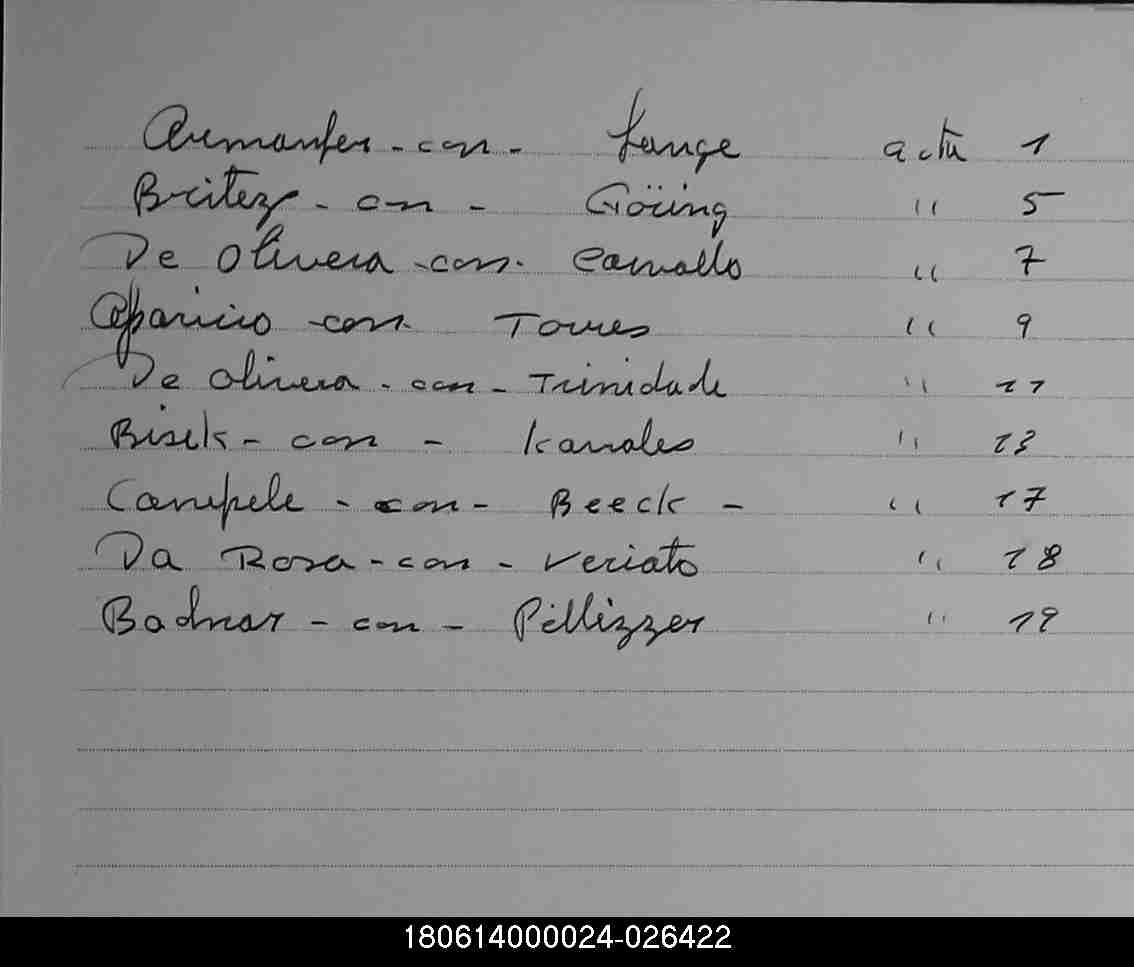 - con - Lange acta 1
Britez - con - Göring " 5
De Olivera - con - Carvallo " 7
Aparicio - con - Torres " 9
De Olivera - con - Trinidade " 11
Bisek - con - Kanales " 13
Canepele - con - Beeck - " 17
Da Rosa - con - Veriato " 18
Bodnar - con - Pellizzer " 19
180614000024-026422